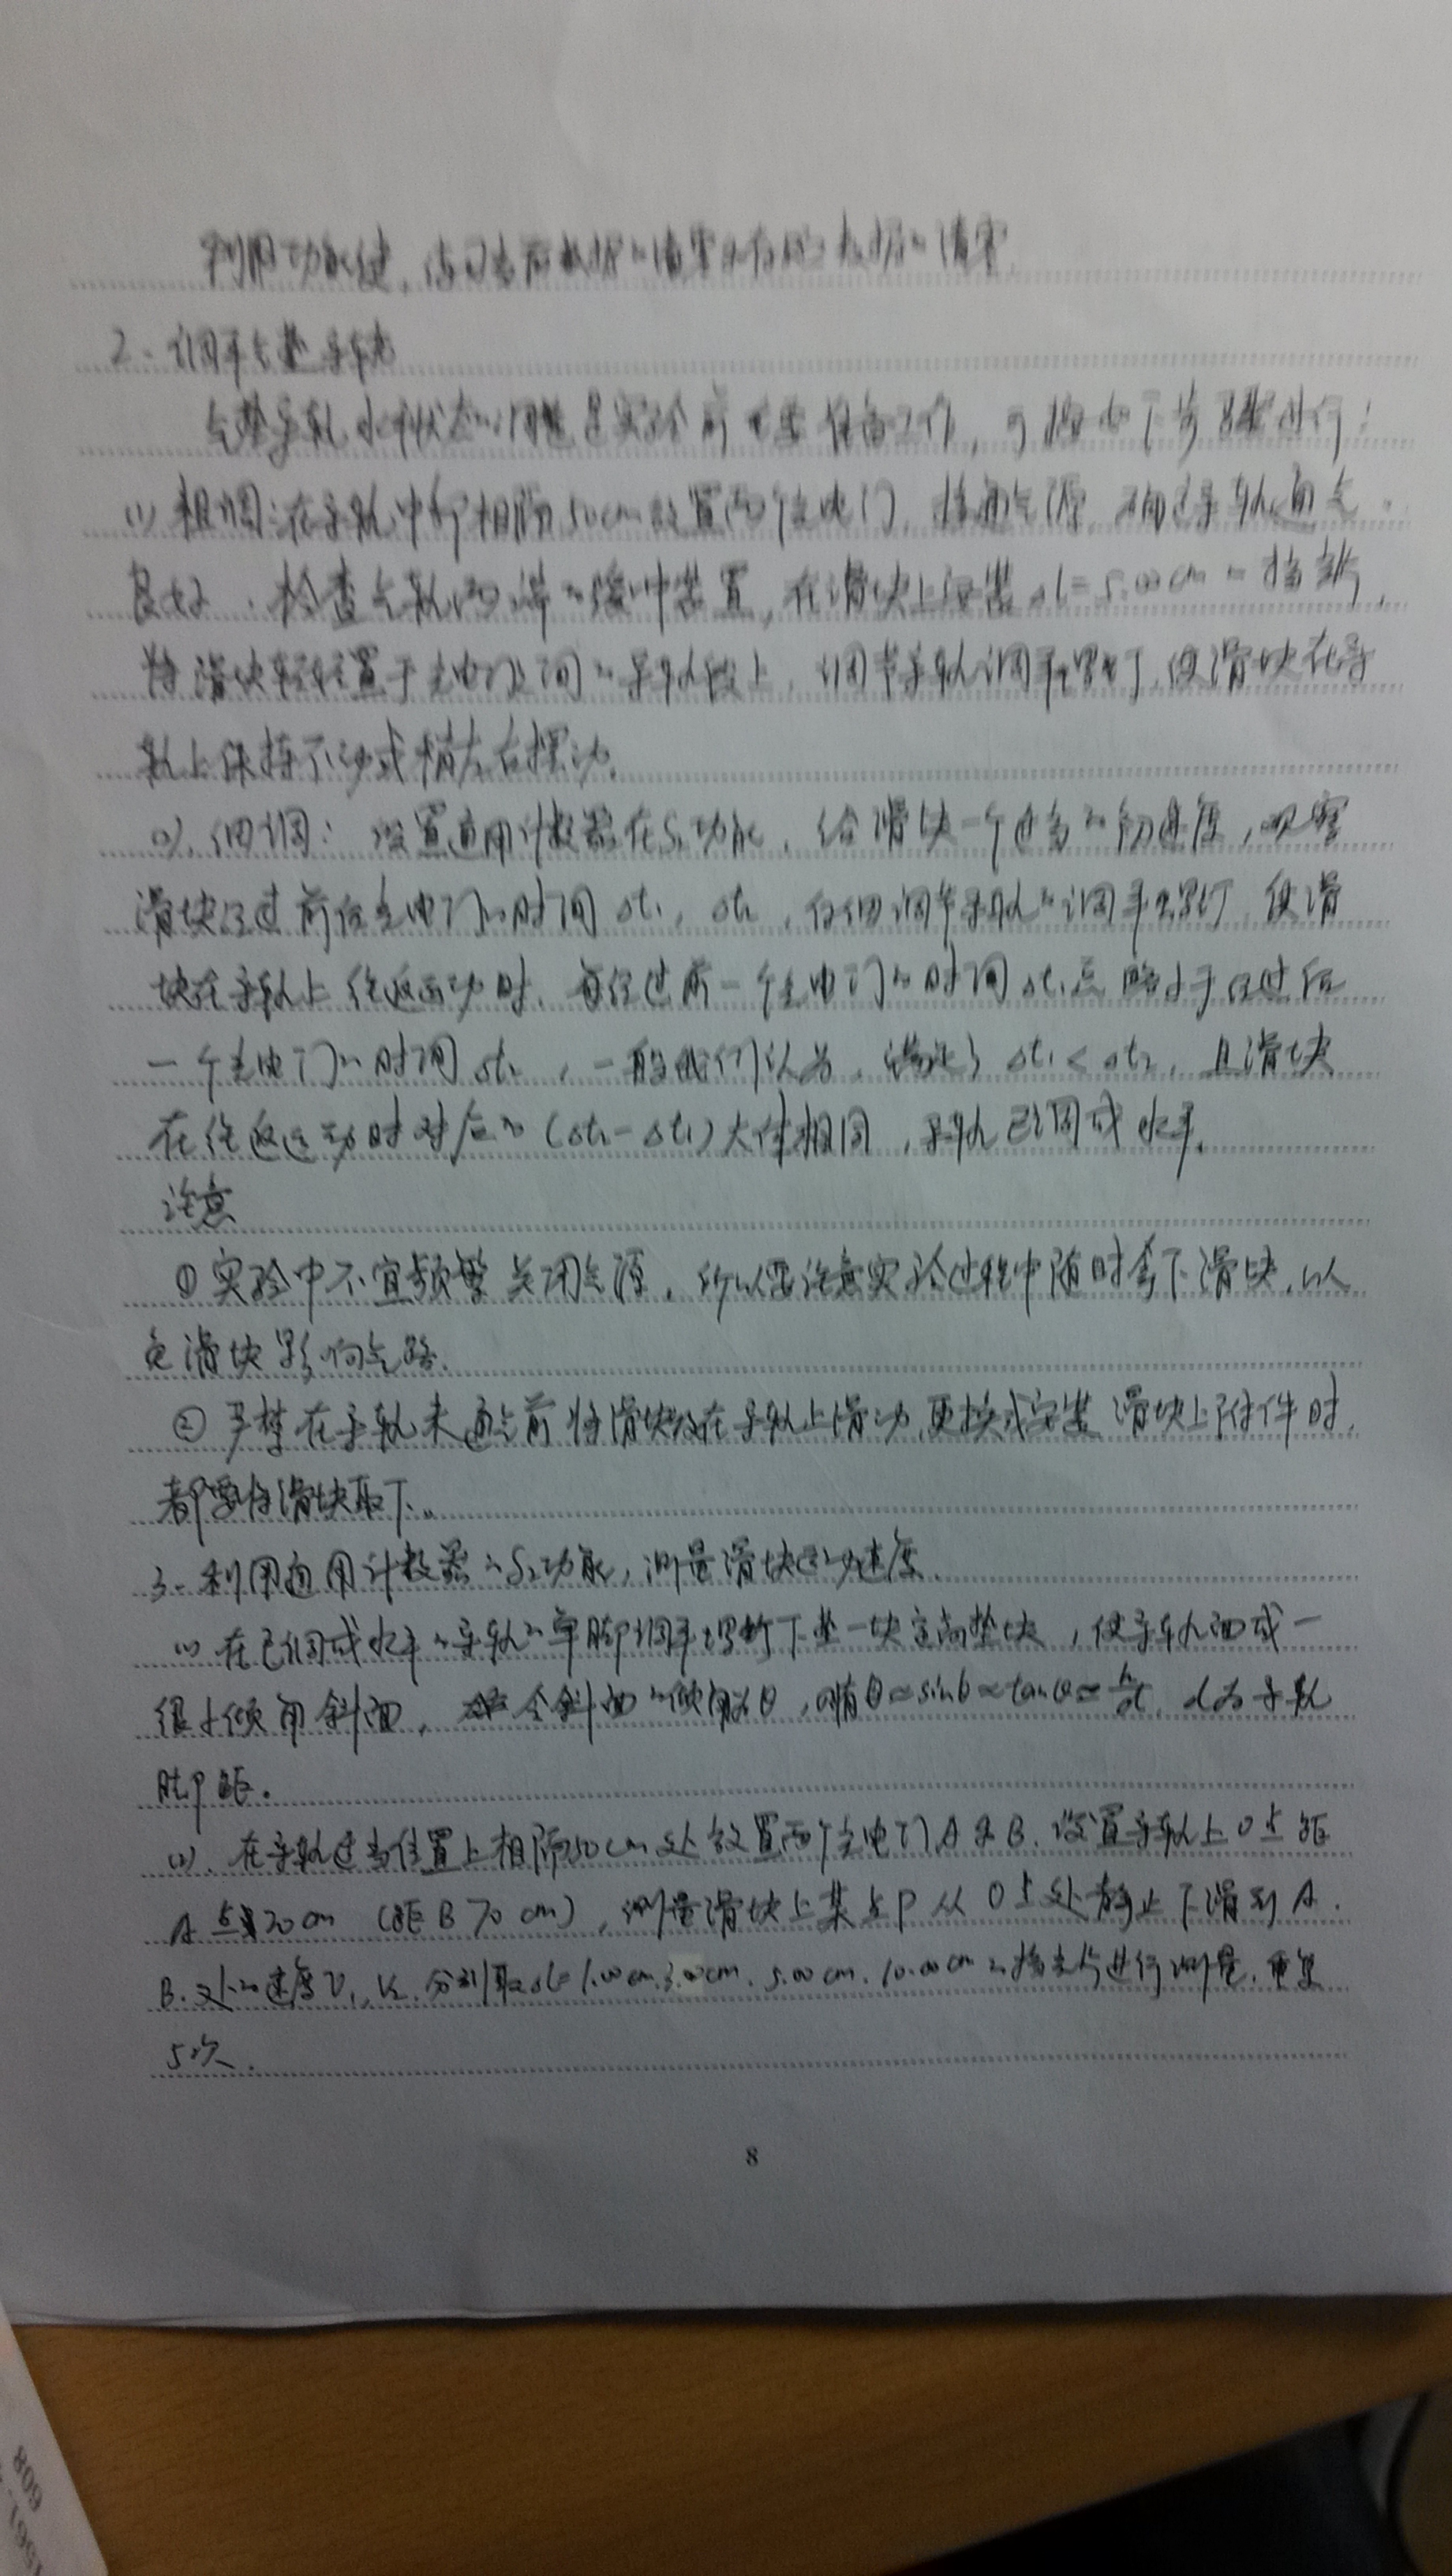 利用功能键，清零
2. 调平气垫导轨
气垫导轨水平状态的调整是实验前重要准备工作，可按如下步骤进行：
(1) 粗调：在导轨中部相隔50cm放置两个光电门，接通气源，确定导轨通气
良好，检查气轨两端的缓冲装置，在滑块上安装Δl=5.00cm的挡光片，
将滑块轻轻置于光电门之间的导轨段上，调节导轨调平螺钉，使滑块在导
轨上保持不动或稍左右摆动。
(2). 细调：设置通用计数器在S₁功能，给滑块一个适当的初速度，观察
滑块经过前后光电门的时间Δt₁，Δt₂，仔细调节导轨的调平螺钉，使滑
块在导轨上往返运动时，每经过前一个光电门的时间Δt₁总略小于经过后
一个光电门的时间Δt₂，一般我们认为，满足了Δt₁<Δt₂，且滑块
在往返运动时对应的(Δt₂-Δt₁)大体相同，导轨已调成水平。
注意
① 实验中不宜频繁关闭气源，所以要注意实验过程中随时拿下滑块，以
免滑块影响气路。
② 严禁在导轨未通气前将滑块放在导轨上滑动，更换或安装滑块上附件时，
都要将滑块取下。
3. 利用通用计数器的S₂功能，测量滑块运动速度。
(1) 在已调成水平的导轨的单脚调平螺钉下垫一块定高垫块，使导轨面成一
很小倾角斜面，令斜面的倾角为θ，则有θ≈sinθ≈tanθ≈h/d，d为导轨
脚距。
(2). 在导轨适当位置上相隔50cm处放置两个光电门A及B，设置导轨上O点距
A点20cm (距B 70 cm)，测量滑块上某点P从O点处静止下滑到A、
B、处的速度v₁，v₂，分别取Δl=1.00cm、3.00cm、5.00cm、10.00cm的挡光片进行测量，重复
5次.
8
608
1561